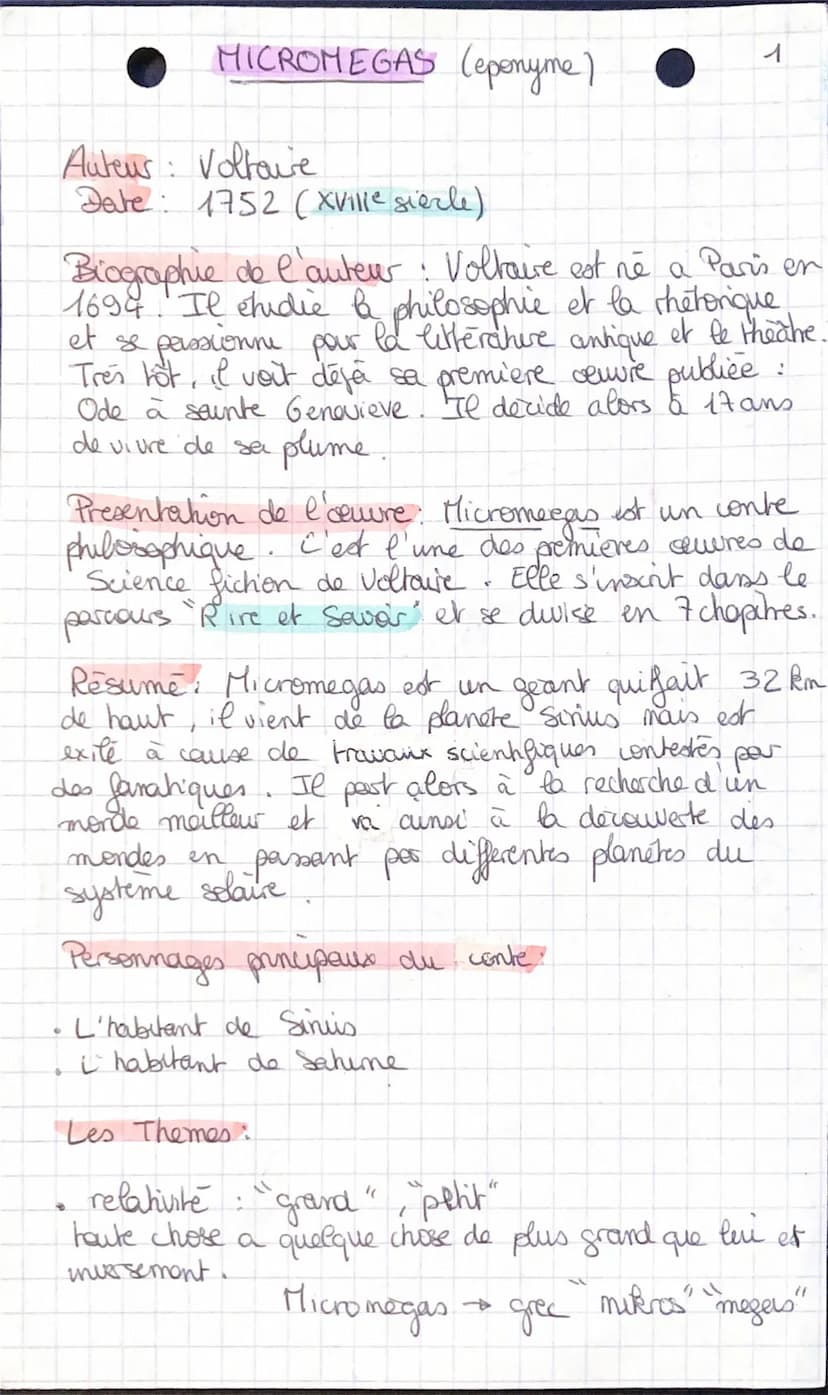 MICROMEGAS (eponyme) 1
Auteur : Voltaire
Date : 1752 (XVIIIe siècle)
Biographie de l'auteur : Voltaire est né a Paris en
1694. Il étudie la philosophie et la rhétorique
et se passionne pour la littérature antique et le théâtre.
Très tôt, il voit déjà sa premiere œuvre publiée :
Ode à sainte Genevieve. Il décide alors à 17 ans
de vivre de sa plume.
Presentation de l'œuvre : Micromeegas est un conte
philosophique. C'est l'une des premieres œuvres de
Science fiction de Voltaire. Elle s'inscrit dans le
parcours "Rire et Savoir" et se divise en 7 chapitres.
Résumé : Micromegas est un geant qui fait 32 km
de haut, il vient de la planète Sirius mais est
exilé à cause de travaux scientifiques contestés par
des fanatiques. Il part alors à la recherche d'un
monde meilleur et va ainsi à la découverte des
mondes en passant par differentes planètes du
système solaire.
Personnages principaux du conte :
• L'habitant de Sirius
• L'habitant de Saturne
Les Themes :
• relativité : "grand", "petit"
toute chose a quelque chose de plus grand que lui et
inversement.
Micromégas → grec "mikros" "megas"